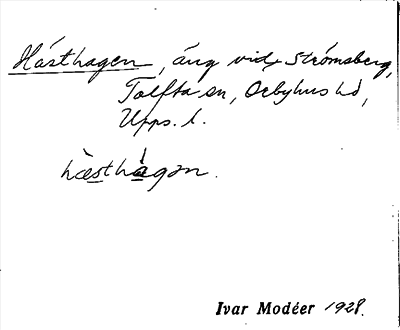 Hästhagen, äng vid Strömsberg,
Tolfta sn, Örbyhus hd,
Upps. l.
hæ̀sthàgən.
Ivar Modéer 1928.